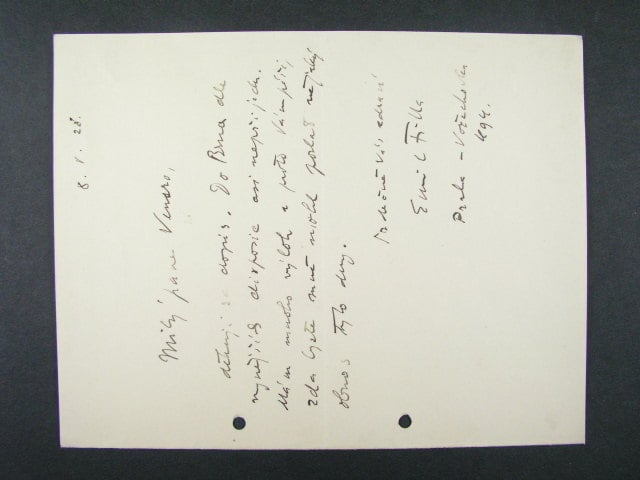 8. V. 28.
Milý pane Venero,
děkuji za dopis. Do Brna dle
nynějších disposic asi nepřijedu.
Mám mnoho výloh a proto Vám píši,
zda byste mně mohl poslat nějaký
obnos tyto dny.
Srdečně Vás zdraví
Emil Filla
Praha - Vořechovka
494.